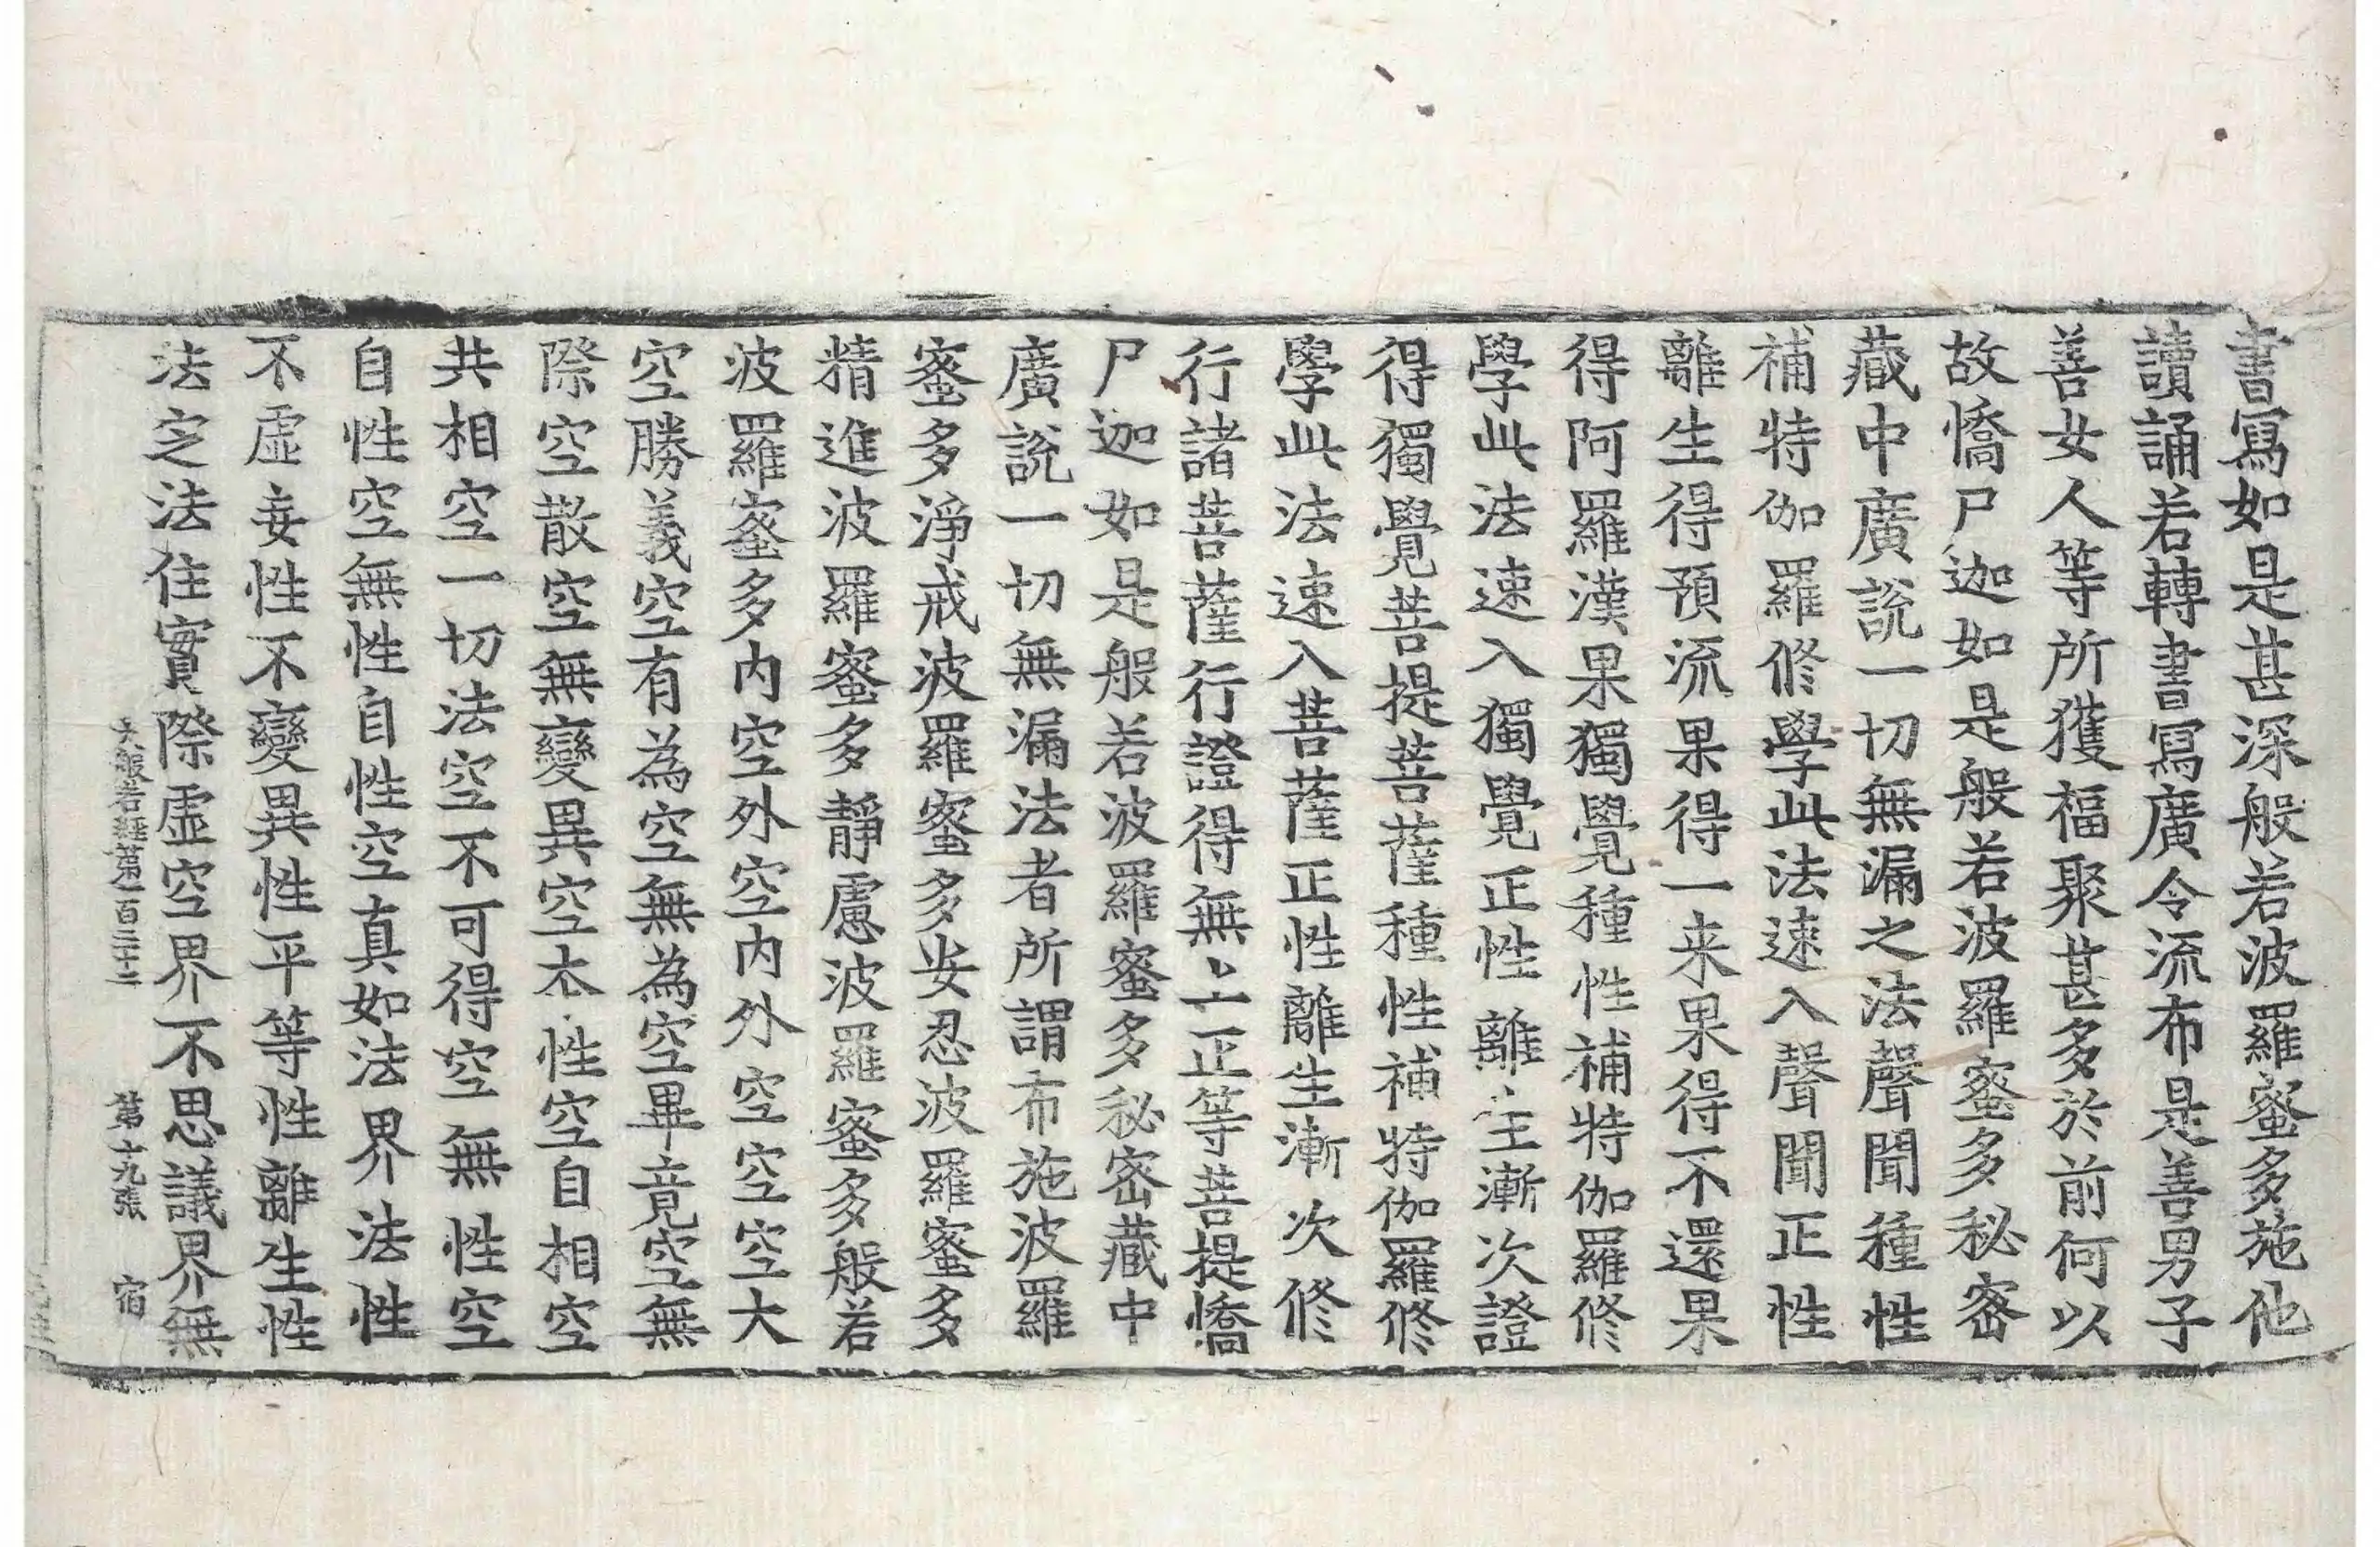 書寫如是甚深般若波羅蜜多施他
讀誦若轉書寫廣令流布是善男子
善女人等所獲福聚甚多於前何以
故憍尸迦如是般若波羅蜜多秘密
藏中廣說一切無漏之法聲聞種性
補特伽羅修學此法速入聲聞正性
離生得預流果得一来果得不還果
得阿羅漢果獨覺種性補特伽羅修
學此法速入獨覺正性離生漸次證
得獨覺菩提菩薩種性補特伽羅修
學此法速入菩薩正性離生漸次修
行諸菩薩行證得無上正等菩提憍
尸迦如是般若波羅蜜多秘密藏中
廣說一切無漏法者所謂布施波羅
蜜多淨戒波羅蜜多安忍波羅蜜多
精進波羅蜜多靜慮波羅蜜多般若
波羅蜜多内空外空内外空空空大
空勝義空有為空無為空畢竟空無
際空散空無變異空本性空自相空
共相空一切法空不可得空無性空
自性空無性自性空真如法界法性
不虛妄性不變異性平等性離生性
法定法住實際虛空界不思議界無
大般若經第一百二十二 第十九張 宿